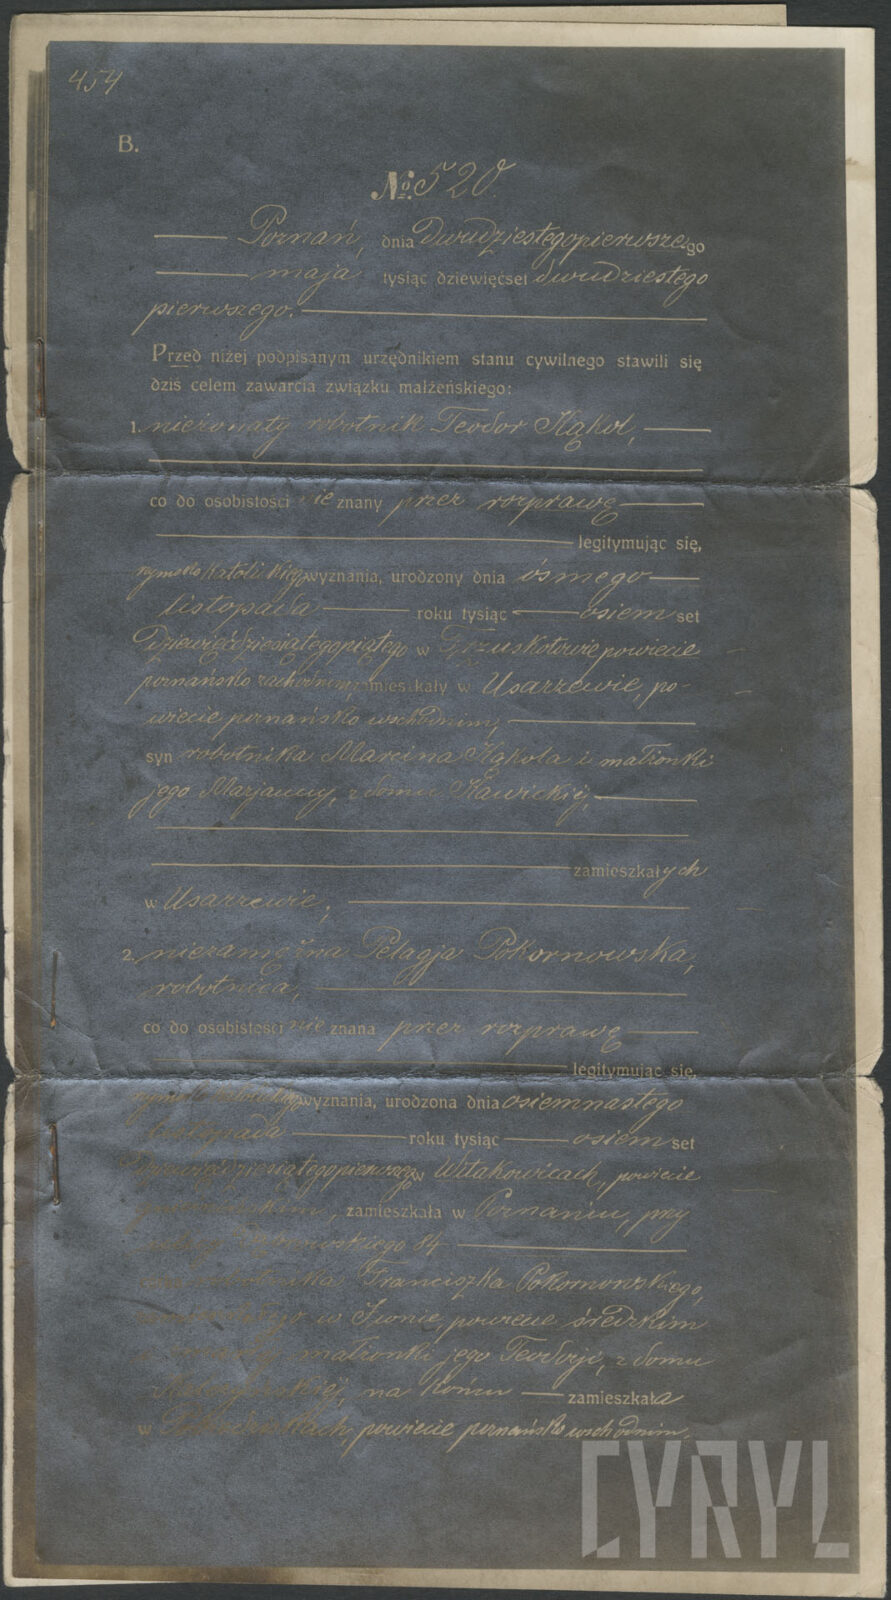 454
B.
No. 520.
Poznań, dnia dwudziestegopierwszego
maja tysiąc dziewięćset dwudziestego
pierwszego.
Przed niżej podpisanym urzędnikiem stanu cywilnego stawili się
dziś celem zawarcia związku małżeńskiego:
1. nieżonaty robotnik Teodor Kąkol,
co do osobistości nie znany przez rozprawę
legitymując się,
rzymsko katolickiego wyznania, urodzony dnia ósmego
listopada roku tysiąc osiem set
dziewięćdziesiątegopiątego w powiecie
poznańsko zachodnim, zamieszkały w Usarzewie, po-
wiecie poznańsko wschodnim,
syn robotnika Marcina Kąkola i małżonki
jego Marjanny, z domu
zamieszkałych
w Usarzewie;
2. niezamężna Pelagja Pokornowska,
robotnica,
co do osobistości nie znana przez rozprawę
legitymując się,
rzymsko katolickiego wyznania, urodzona dnia osiemnastego
roku tysiąc osiem set
dziewięćdziesiątegopierwszego w powiecie
zamieszkała w Poznaniu, przy
84
robotnika Franciszka Pokornowskiego,
w Iwnie, powiecie średzkim
i małżonki jego Teodozji, z domu
na końcu zamieszkała
w powiecie poznańsko wschodnim.
CYRYL